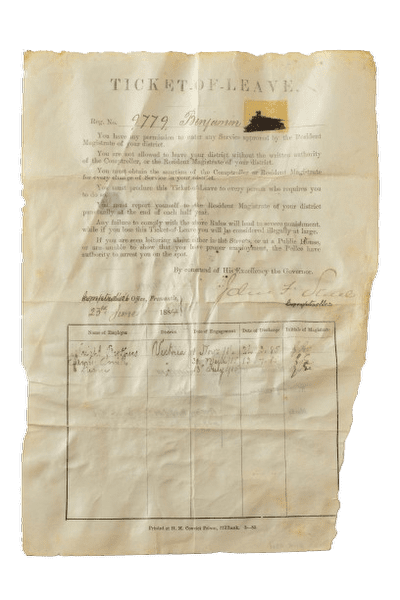 TICKET-OF-LEAVE.
Reg. No. 9779 Benjamin
You have permission to enter any Service approved by the Resident
Magistrate of your district.
You are not allowed to leave your district without the written authority
of the Comptroller, or the Resident Magistrate of your district.
You must obtain the sanction of the Comptroller or Resident Magistrate
for every change of Service in your district.
You must produce this Ticket-of-Leave to every person who requires you
to do so.
You must report yourself to the Resident Magistrate of your district
personally at the end of each half year.
Any failure to comply with the above Rules will lead to severe punishment,
while if you lose this Ticket of Leave you will be considered illegally at large.
If you are seen loitering about either in the Streets, or at a Public House,
or are unable to show that you have proper employment, the Police have
authority to arrest you on the spot.
By command of His Excellency the Governor,
Office, Fremantle,
Comptroller
25th June
Name of Employer. District. Date of Engagement. Date of Discharge. Initials of Magistrate.
Wright Brothers Victoria
July
Printed at H. M. Convict Prison,